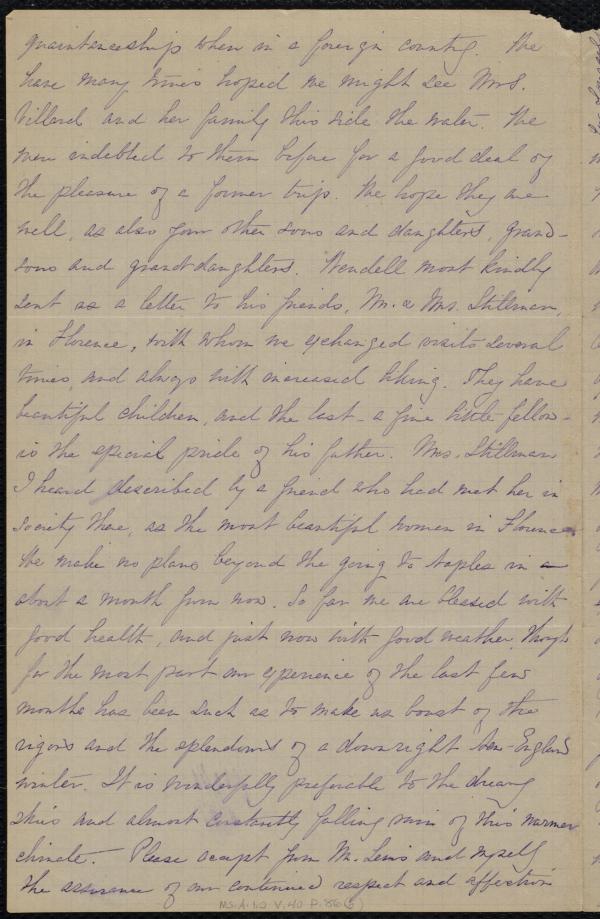 quaintanceship when in a foreign country. We
have many times hoped we might see Mrs.
Villard and her family this side the water. We
were indebted to them before for a good deal of
the pleasure of a former trip. We hope they are
well, as also your other sons and daughters, grand-
sons and granddaughters. Wendell most kindly
sent us a letter to his friends, Mr. & Mrs. Stillman,
in Florence, with whom we exchanged visits several
times, and always with increased liking. They have
beautiful children, and the last - a fine little fellow -
is the special pride of his father. Mrs. Stillman
I heard described by a friend who had met her in
society there, as the most beautiful woman in Florence
We make no plans beyond the going to Naples in
about a month from now. So far we are blessed with
good health, and just now with good weather, though
for the most part our experience of the last few
months has been such as to make us boast of the
rigors and the splendours of a downright New-England
winter. It is wonderfully preferable to the dreary
skies and almost constantly falling rain of this warmer
climate. Please accept from Mr. Lewis and myself
the assurance of our continued respect and affection
MS.A.1.2 V.40 P.86(5)